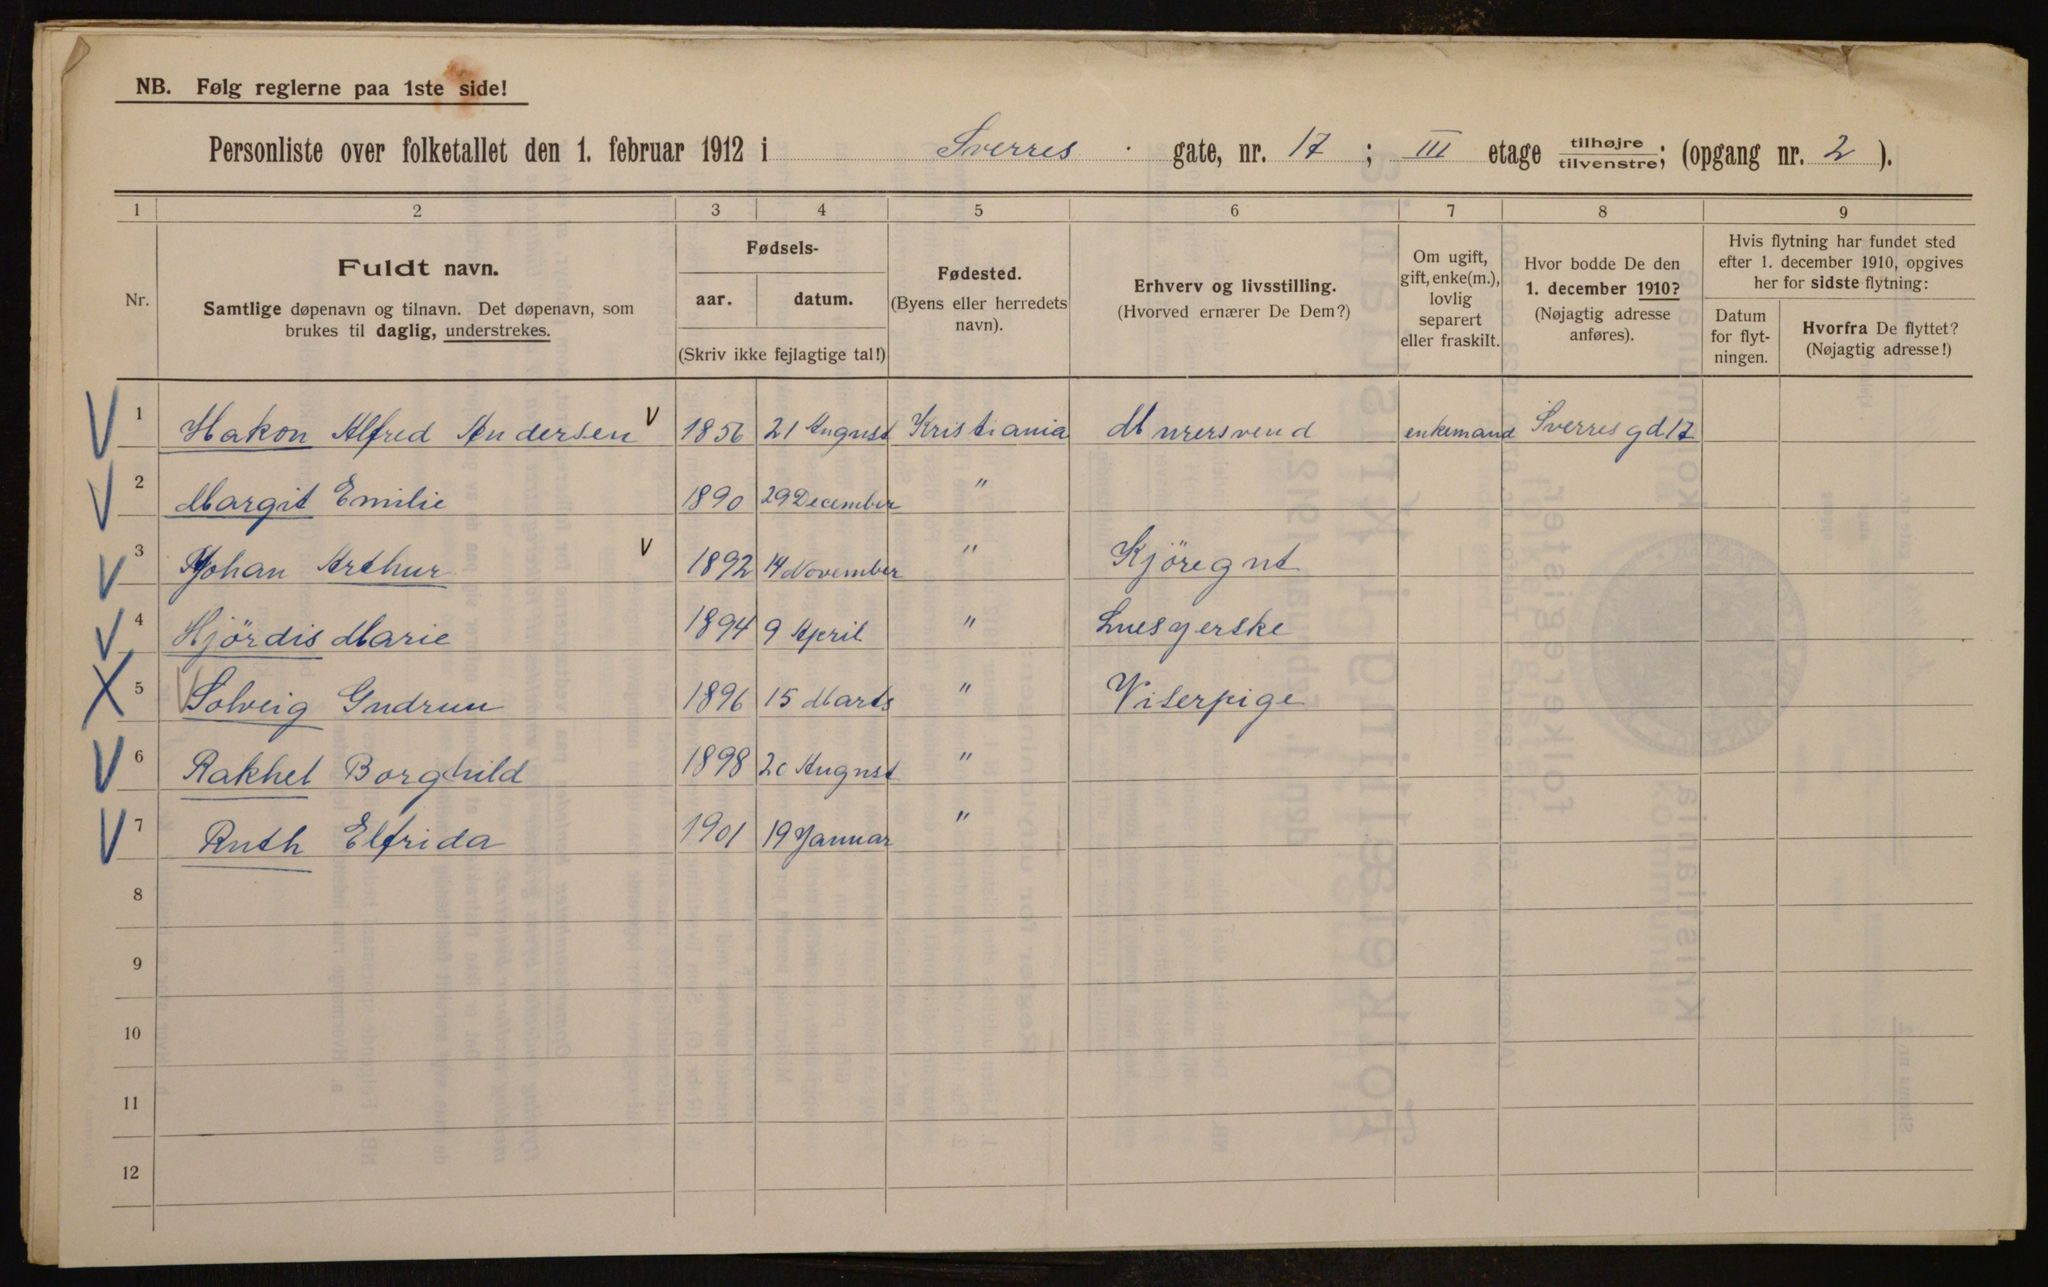 NB. Følg reglerne paa 1ste side!
Personliste over folketallet den 1. februar 1912 i Sverres gate, nr. 17; III etage tilhøjre/tilvenstre; (opgang nr. 2).
1 2 3 4 5 6 7 8 9
Nr.
Fuldt navn.
Samtlige døpenavn og tilnavn. Det døpenavn, som
brukes til daglig, understrekes.
Fødsels-
aar. datum.
(Skriv ikke fejlagtige tal!)
Fødested.
(Byens eller herredets
navn).
Erhverv og livsstilling.
(Hvorved ernærer De Dem?)
Om ugift,
gift, enke(m.),
lovlig
separert
eller fraskilt.
Hvor bodde De den
1. december 1910?
(Nøjagtig adresse
anføres).
Hvis flytning har fundet sted
efter 1. december 1910, opgives
her for sidste flytning:
Datum
for flyt-
ningen.
Hvorfra De flyttet?
(Nøjagtig adresse!)
1 Hakon Alfred Andersen 1856 21 August Kristiania Murersvend enkemand Sverres gd 17
2 Margit Emilie 1890 29 December "
3 Johan Arthur 1892 14 November " Kjöregut
4 Hjördis Marie 1894 9 April "
5 Solveig Gudrun 1896 15 Marts " Viserpige
6 Rakhel Borghild 1898 20 August "
7 Ruth Elfrida 1901 19 Januar "
8
9
10
11
12